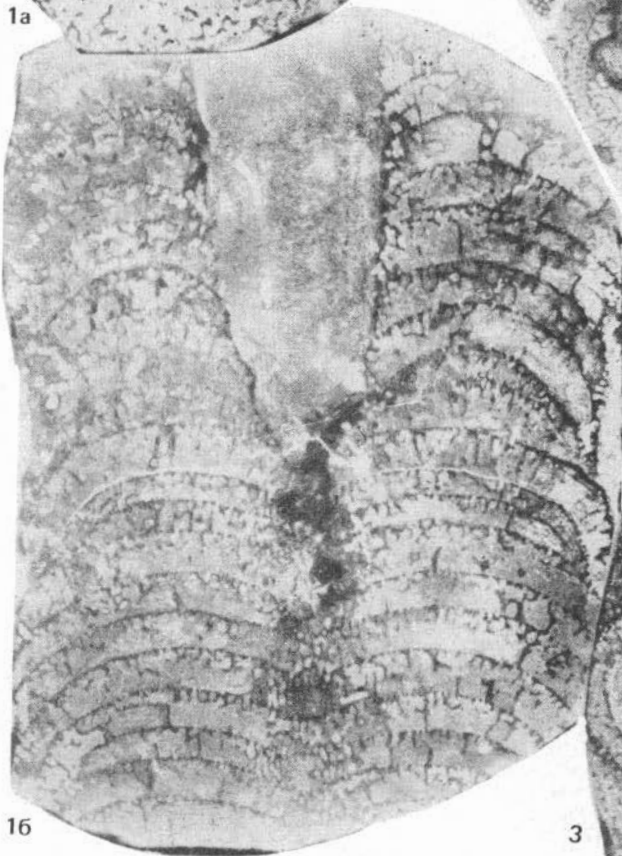 1а
1б
3